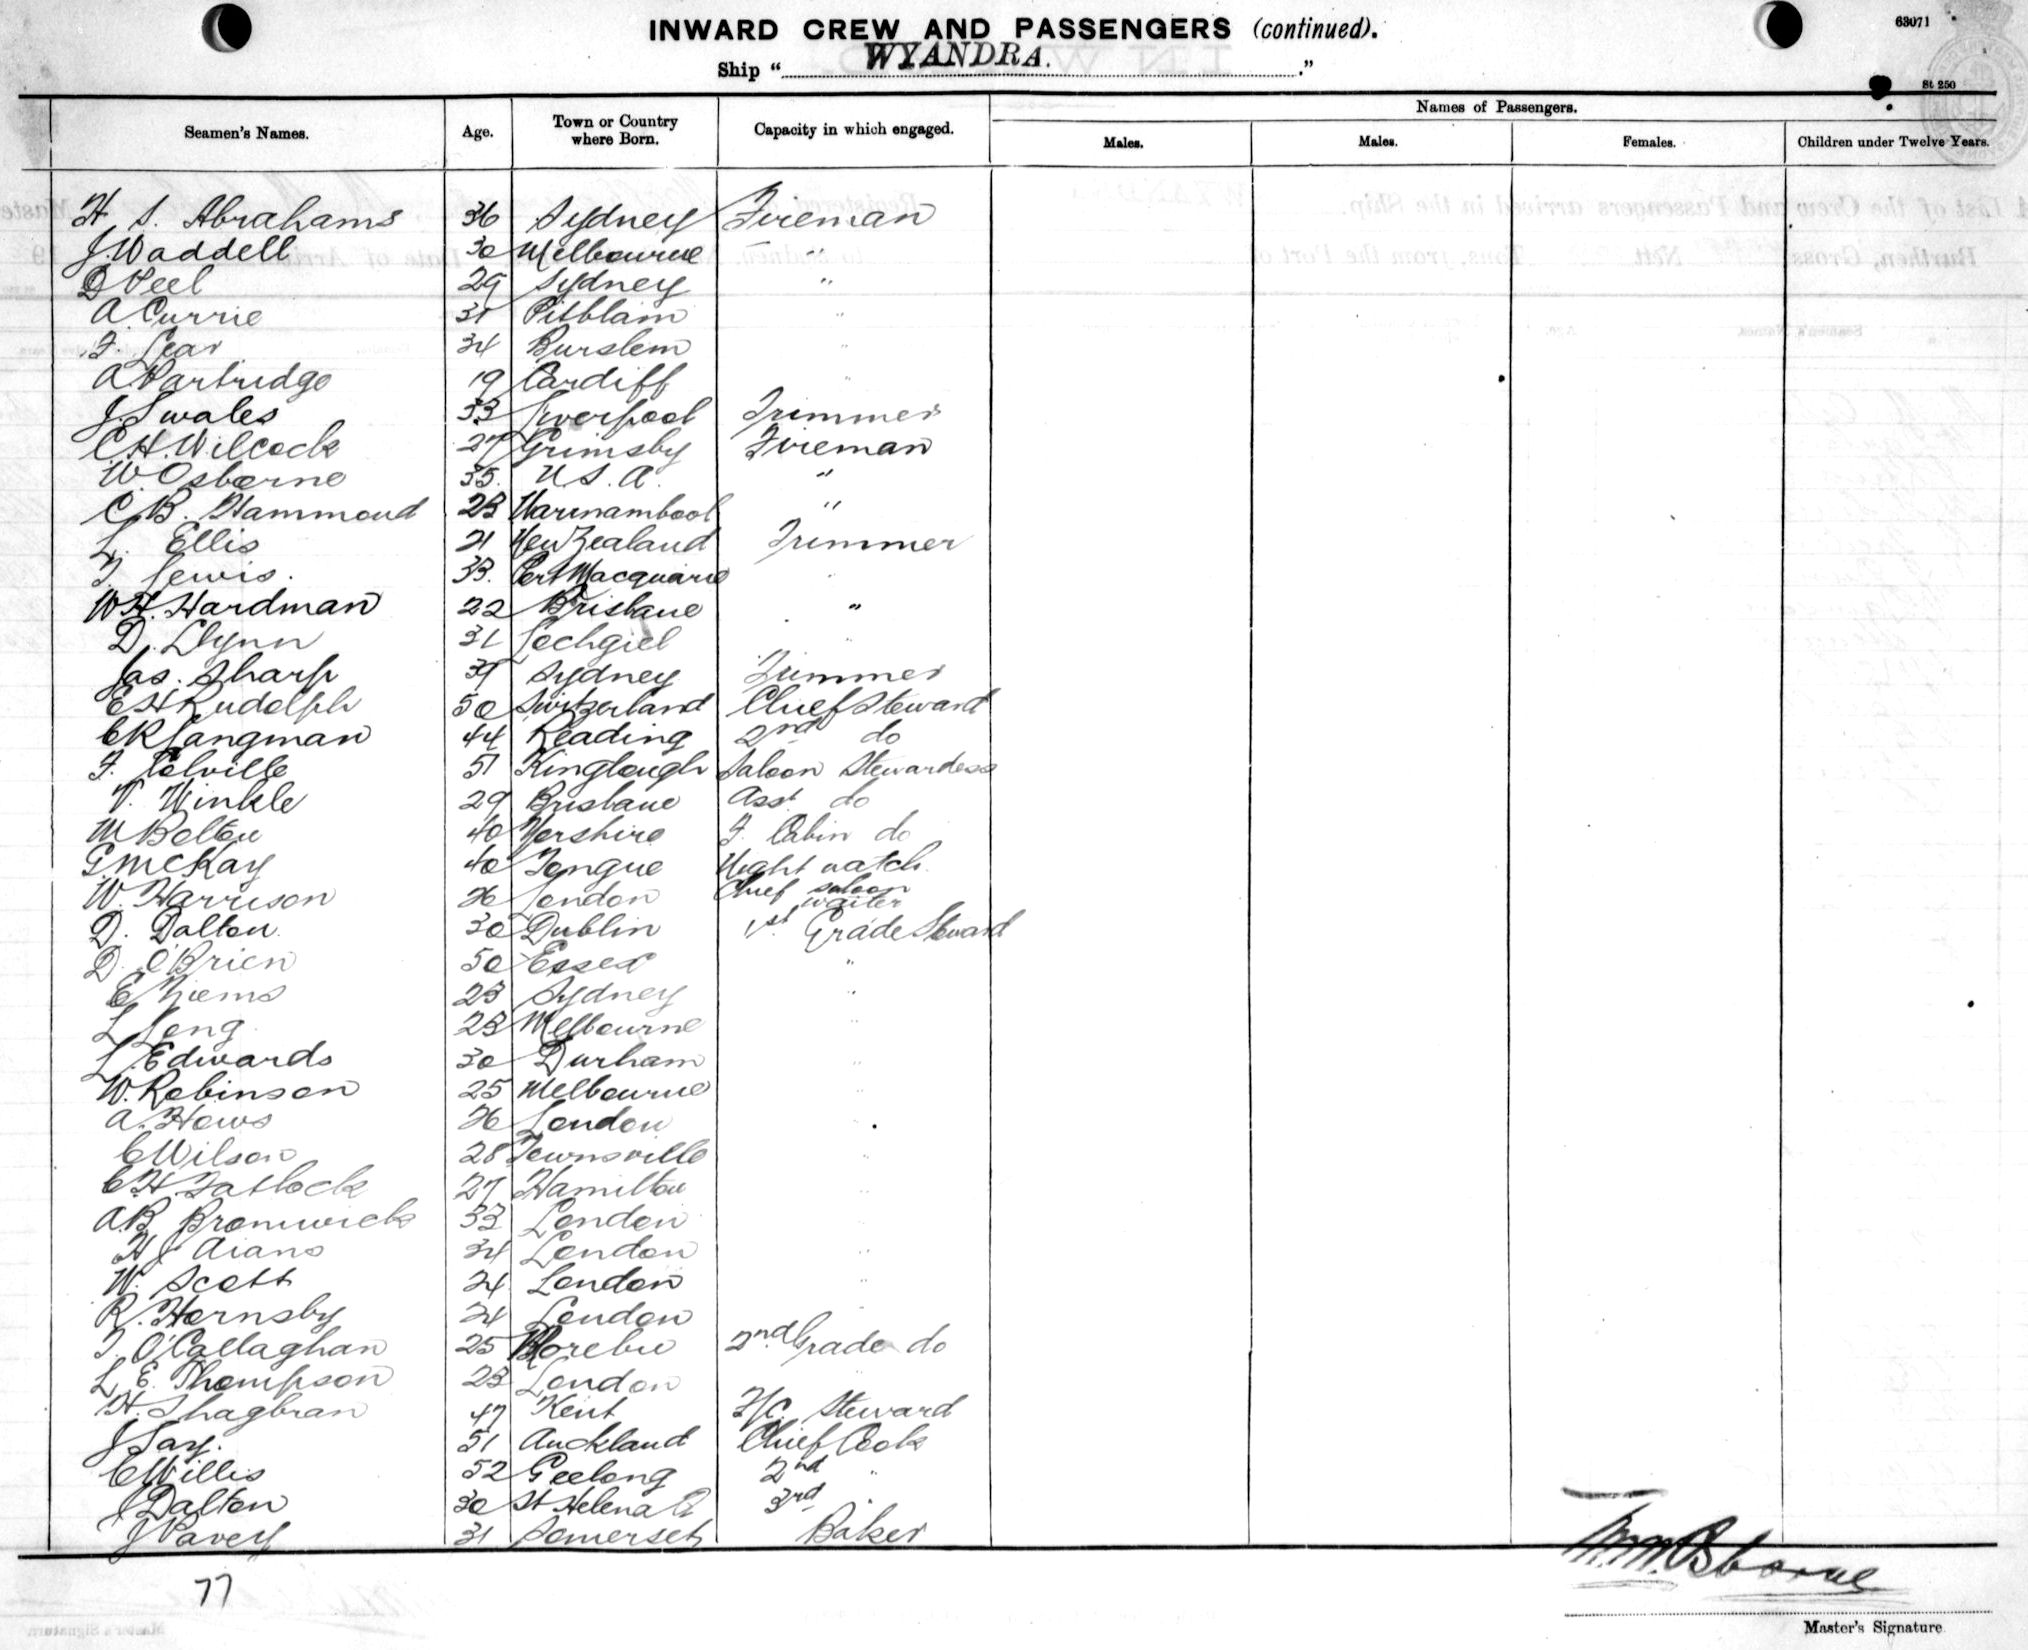 INWARD CREW AND PASSENGERS (continued).
63071
Ship "WYANDRA."
St 250
Seamen's Names. Age. Town or Country where Born. Capacity in which engaged. Names of Passengers.
Males. Males. Females. Children under Twelve Years.
H S. Abrahams 36 Sydney Fireman
J. Waddell 30 Melbourne "
D Peel 29 Sydney "
A. Currie 31 Pitblain "
F Lear 34 Burslem "
A Partridge 19 Cardiff "
J. Swales 33 Liverpool Trimmer
C H. Wilcock 27 Grimsby Fireman
W. Osborne 35. U.S.A. "
C. B. Hammond 23 Warrnambool "
L. Ellis 21 New Zealand Trimmer
T. Lewis. 33. Port Macquarie "
W H. Hardman 22 Brisbane "
D. Llynn 31 Lochgiel "
Jas. Sharp 39 Sydney Trimmer
E H Rudolph 50 Switzerland Chief Steward
C R Langman 44 Reading 2nd do
F. Colville 51 Kinglough Saloon Stewardess
V. Winkle 29 Brisbane Asst do
M Bolton 40 Yorshire F. Cabin do
G McKay 40 Tongue Night watch
W. Harrison 26 London Chief saloon waiter
D. Dalton 30 Dublin 1st Grade Steward
D. O'Brien 50 Essex "
E Niems 23 Sydney "
L Long 23 Melbourne "
L. Edwards 30 Durham "
W. Robinson 25 Melbourne "
A. Hows 26 London "
C Wilson 28 Townsville "
C H Tatlock 27 Hamilton "
A.B. Bromwich 33 London "
H J Aians 34 London "
W. Scott 24 London "
R. Hornsby 24 London "
T. O'Callaghan 25 2nd Grade do
L E. Thompson 23 London "
H. Shagbran 47 Kent F/C. Steward
J Say. 51 Auckland Chief Cook
C Willis 52 Geelong 2nd "
J Dalton 30 St Helena 3rd "
J Pavey 31 Somerset Baker
77
Wm. Osborne
Master's Signature